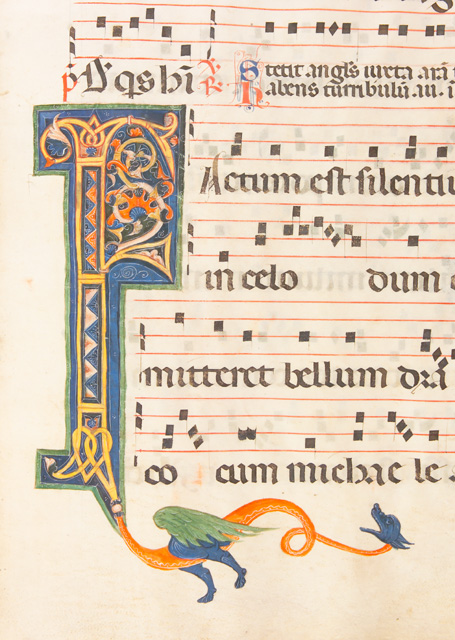 Stetit angl̄s iuxta arā
habens turribulū au. i
FActum est silentiu
in celo dum
mitteret bellum dra
co cum michae le